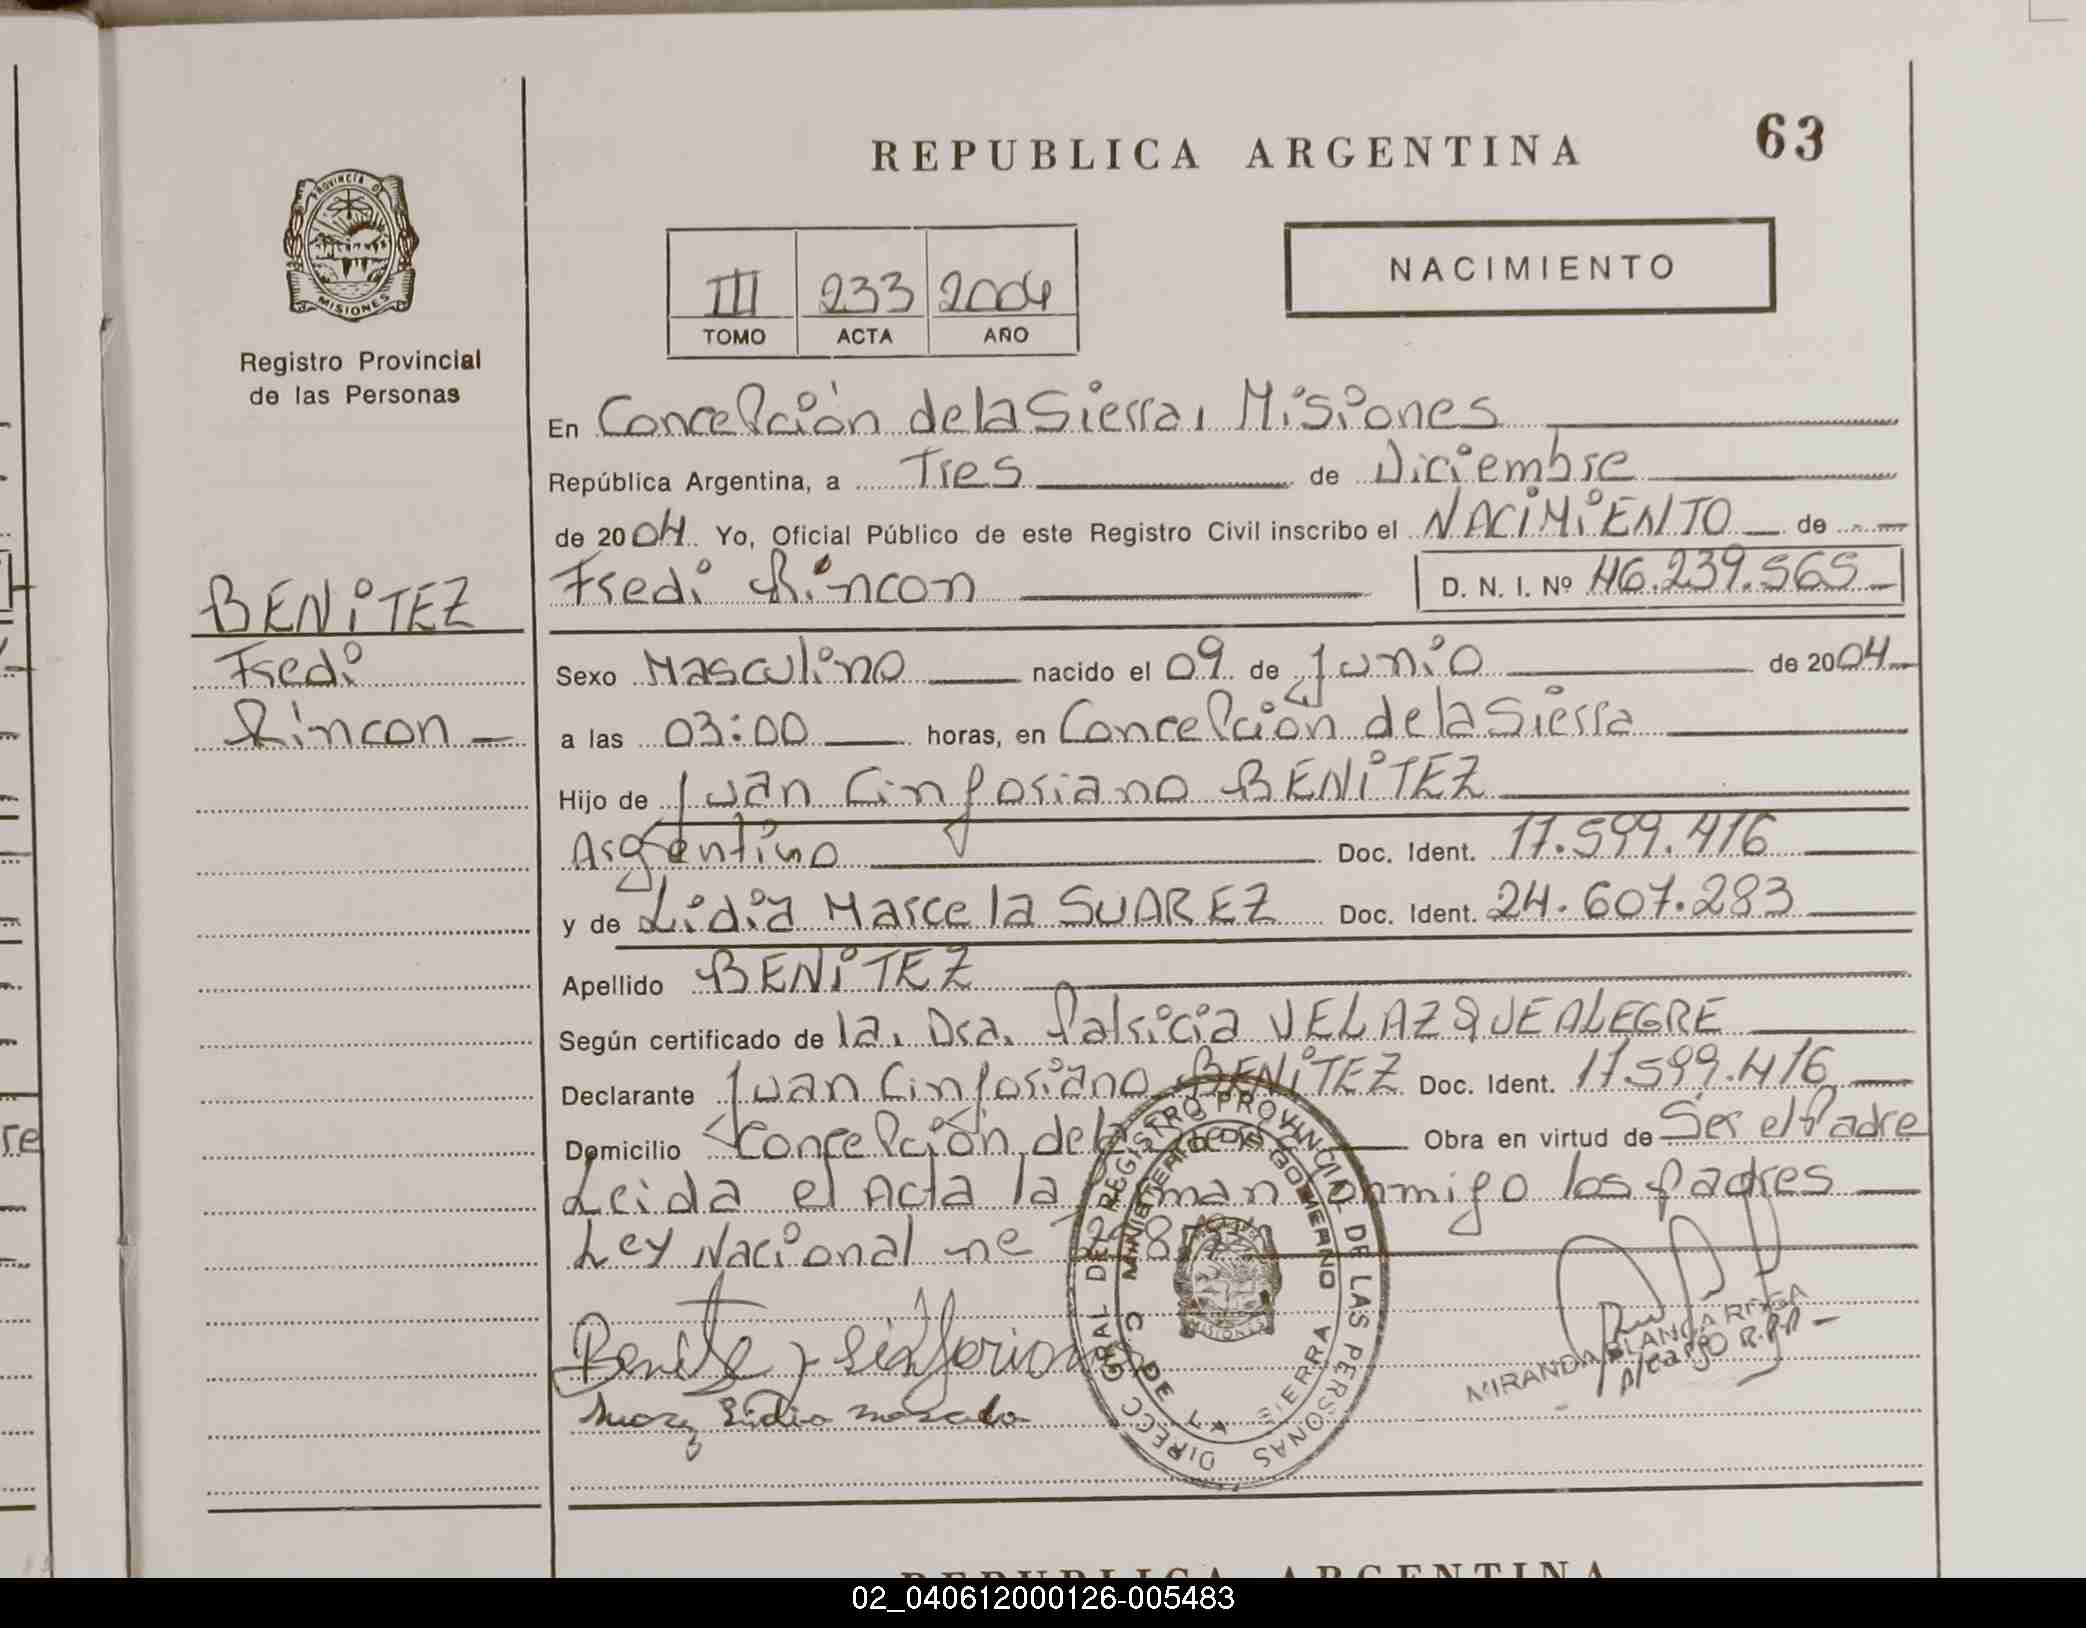 REPUBLICA ARGENTINA
63
PROVINCIA DE
MISIONES
Registro Provincial
de las Personas
III 233 2004
TOMO ACTA AÑO
NACIMIENTO
En Concepción de la Sierra, Misiones
República Argentina, a Tres de Diciembre
de 2004 Yo, Oficial Público de este Registro Civil inscribo el NACIMIENTO de
Fredi Rincon D. N. I. Nº 46.239.565
BENITEZ
Fredi
Rincon
Sexo Masculino nacido el 09 de Junio de 2004
a las 03:00 horas, en Concepción de la Sierra
Hijo de Juan Cinforiano BENITEZ
Argentino Doc. Ident. 17.599.416
y de Lidia Marcela SUAREZ Doc. Ident. 24.607.283
Apellido BENITEZ
Según certificado de la. Dra. Patricia VELAZQUEALEGRE
Declarante Juan Cinforiano BENITEZ Doc. Ident. 17.599.416
Domicilio Concepción de la Obra en virtud de Ser el Padre
Leida el Acta la conmigo los padres
Ley Nacional
Benitez sinforiano
Suarez Lidia marcela
MIRANDA BLANCA ROSA
A/cargo R.P.P
DIRECC GRAL DE REGISTRO PROVINCIAL DE LAS PERSONAS
MINISTERIO DE GOBIERNO
C DE L SIERRA
MISIONES
re
REPUBLICA ARGENTINA
02_040612000126-005483